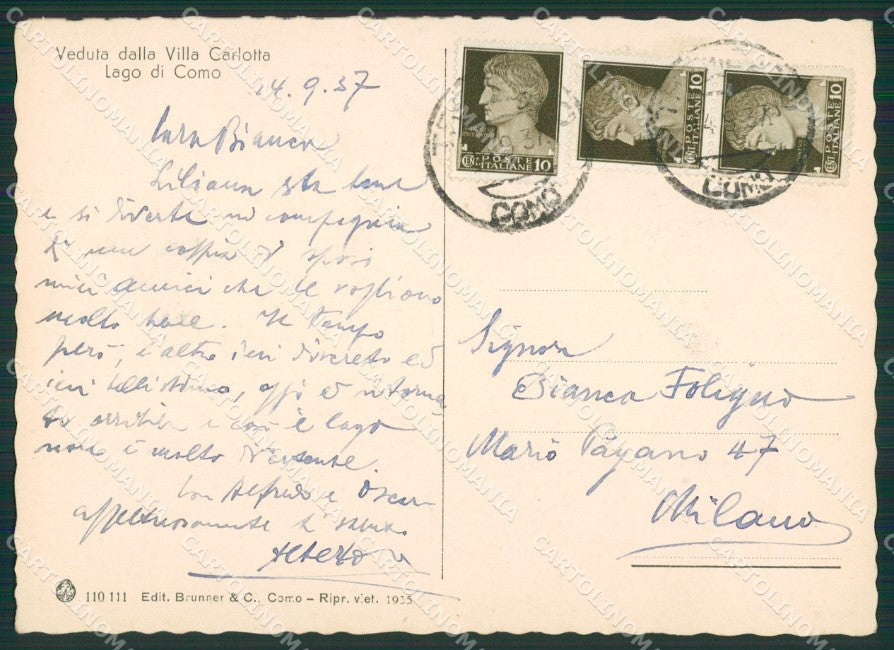 Veduta dalla Villa Carlotta
Lago di Como
14.9.37
Cara Bianca
Liliana sta bene
e si diverte in compagnia
di una coppia di sposi
miei amici che le vogliono
molto bene. Il tempo
però, l'altro ieri discreto ed
ieri bellissimo, oggi è ritorna
to orribile e così è lago
non è molto
Con Alfredo e Oscar
affettuosamente
Alberto
110 111 Edit. Brunner & C., Como - Ripr. viet. 1935
POSTE
ITALIANE 10
POSTE
ITALIANE 10
POSTE
ITALIANE 10
COMO
COMO
Signora
Bianca Foligno
Mario Pagano 47
Milano
CARTOLINOMANIA